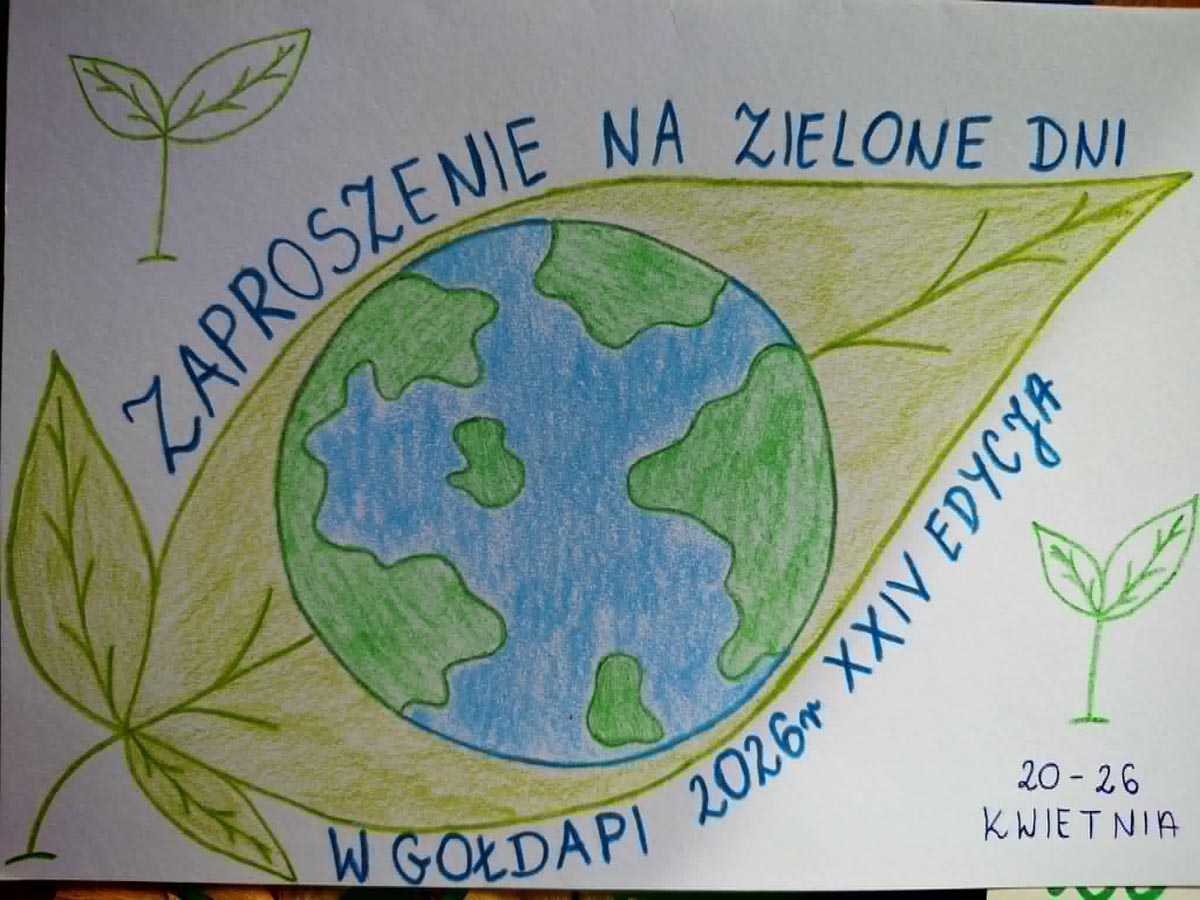 ZAPROSZENIE NA ZIELONE DNI
W GOŁDAPI 2026r XXIV EDYCJA
20-26
KWIETNIA